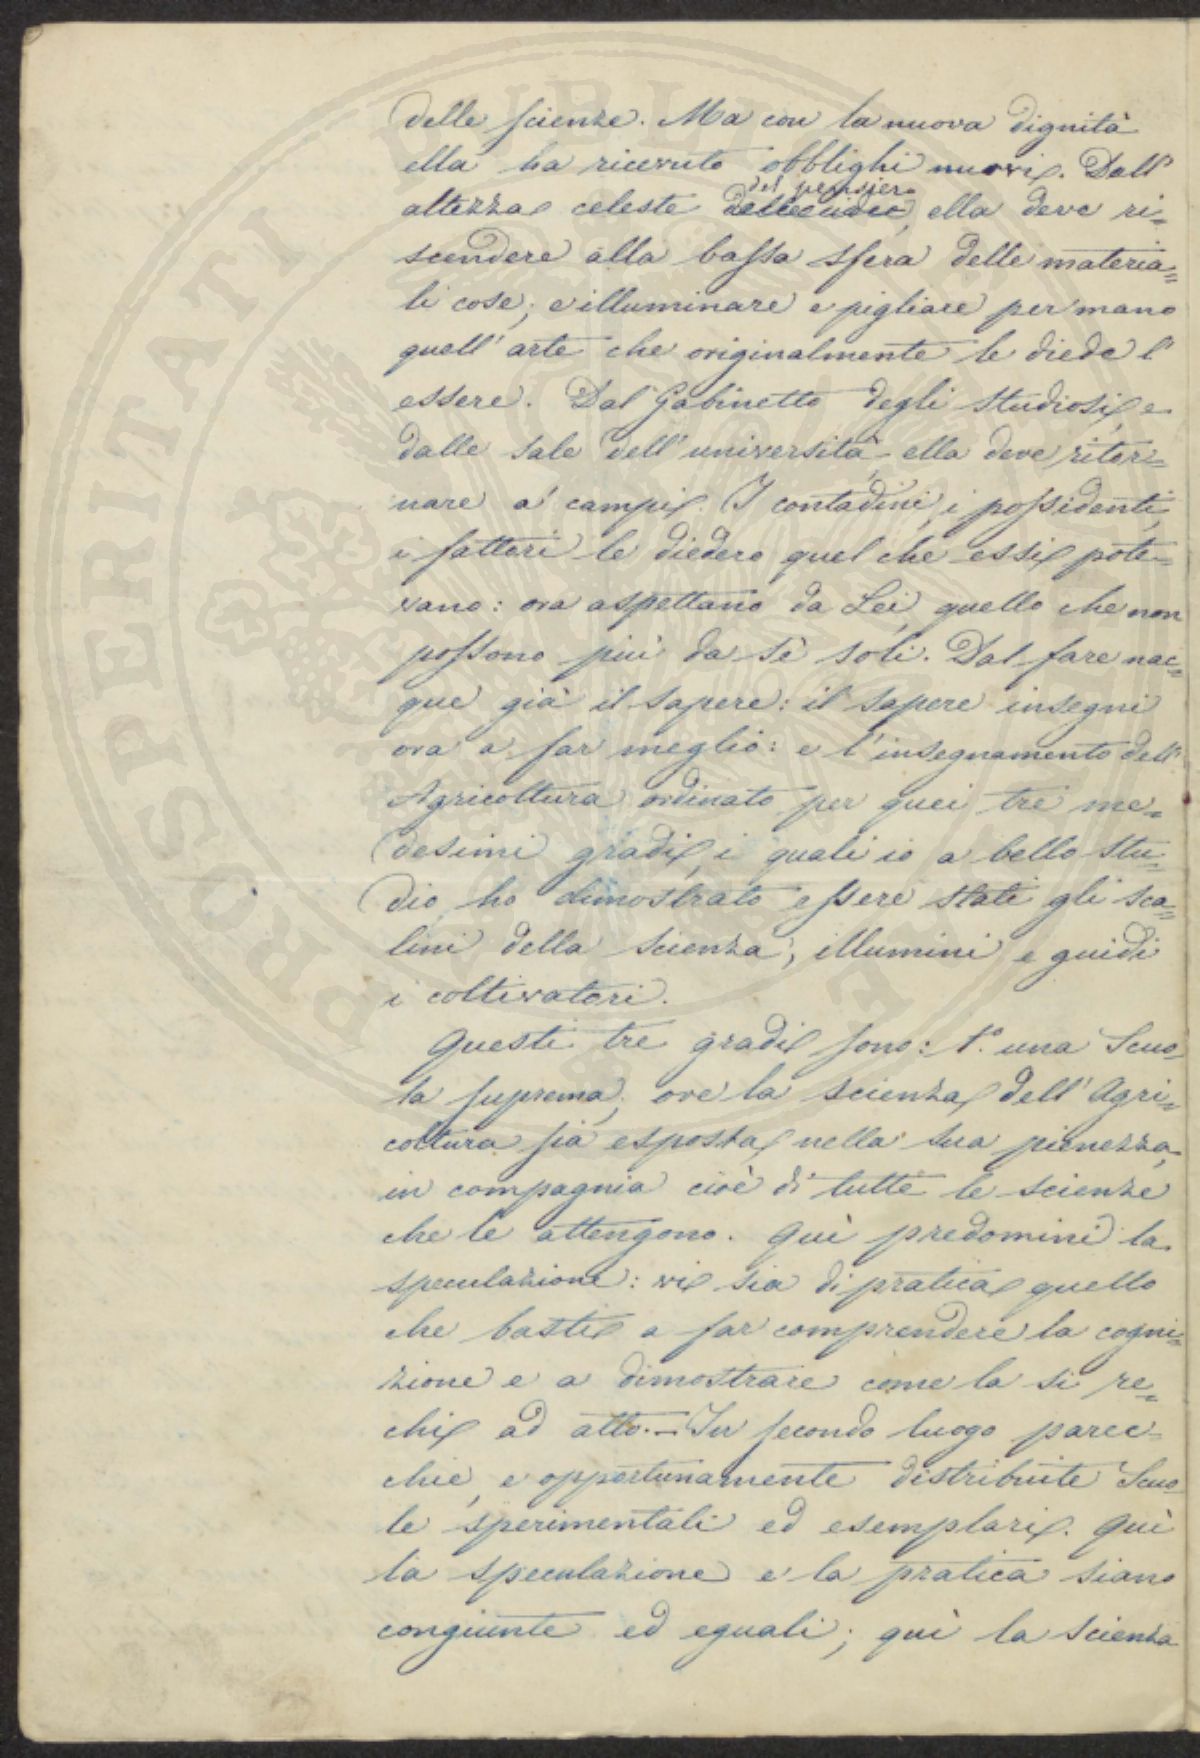 delle scienze. Ma con la nuova dignità
ella ha ricevuto obblighi nuovi. Dall'
altezza celeste delle idee, ella deve ri=
del pensiero
scendere alla bassa sfera delle materia=
li cose; e illuminare e pigliare per mano
quell'arte che originalmente le diede l'
essere. Dal Gabinetto degli studiosi, e
dalle sale dell'università, ella deve ritor=
nare a' campi. I contadini, i possidenti,
i fattori le diedero quel che essi pote=
vano: ora aspettano da Lei, quello che non
possono più da sè soli. Dal fare nac=
que già il sapere: il sapere insegni
ora a far meglio: e l'insegnamento dell'
Agricoltura ordinato per quei tre me=
desimi gradi, i quali io a bello stu=
dio ho dimostrato essere stati gli sca=
lini della scienza, illumini e guidi
i coltivatori.
Questi tre gradi sono: 1.° una Scuo=
la suprema, ove la scienza dell'Agri=
coltura sia esposta nella sua pienezza,
in compagnia cioè di tutte le scienze
che le attengono. Quì predomini la
speculazione: vi sia di pratica quello
che basti a far comprendere la cogni=
zione e a dimostrare come la si re=
chi ad atto. — In secondo luogo parec=
chie, e opportunamente distribuite Scuo=
le sperimentali ed esemplari. Quì
la speculazione e la pratica siano
congiunte ed eguali; quì la scienza
PROSPERITATI PUBLICAE